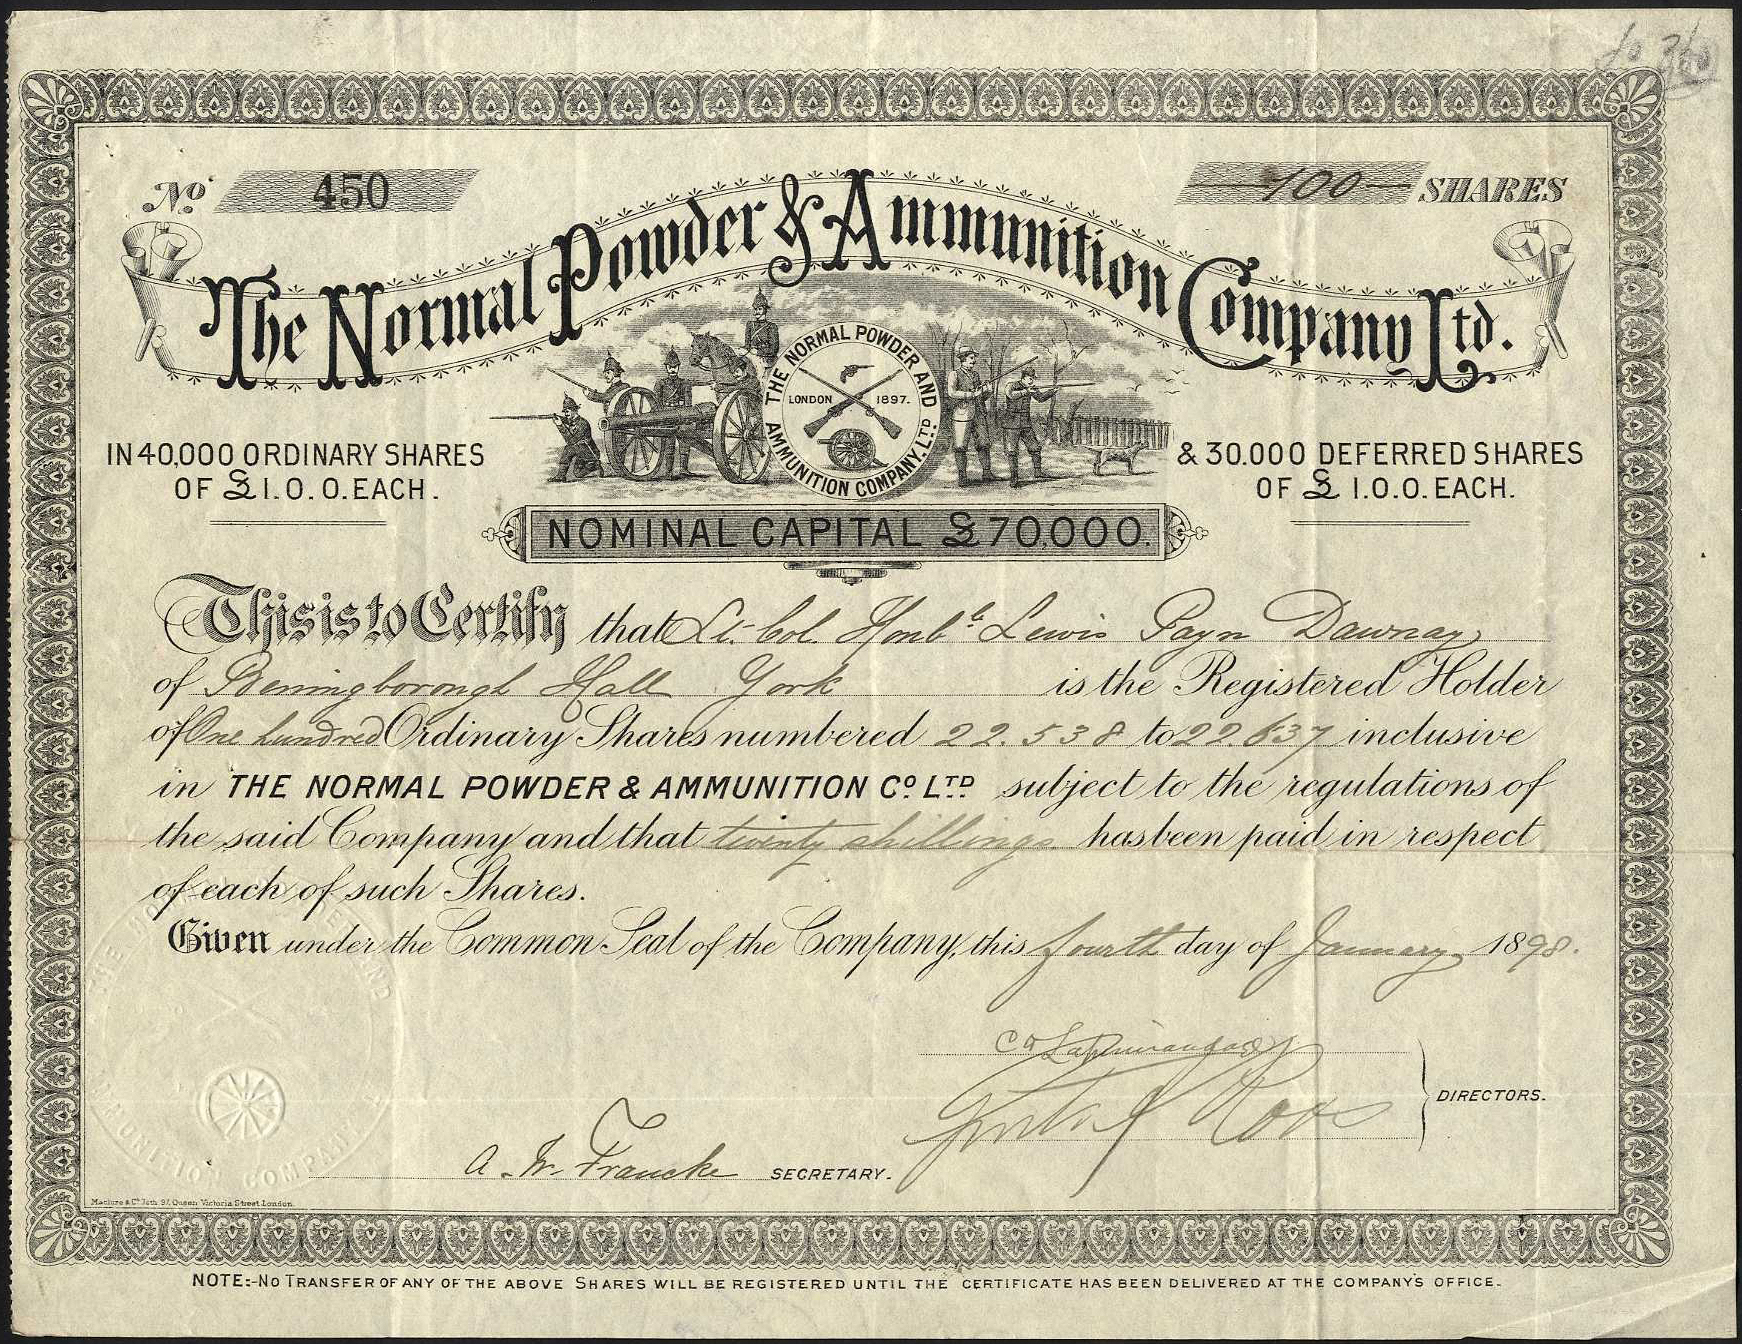 No. 450
100 SHARES
The Normal Powder & Ammunition Company Ltd.
THE NORMAL POWDER AND AMMUNITION COMPANY, LTD
LONDON 1897.
IN 40,000 ORDINARY SHARES
OF £1.0.0. EACH.
& 30.000 DEFERRED SHARES
OF £1.0.0. EACH.
NOMINAL CAPITAL £70,000.
This is to Certify that Lt. Col. Honble. Lewis Payn Dawnay
of Beningborough Hall York is the Registered Holder
of One hundred Ordinary Shares numbered 22.538 to 22.637 inclusive
in THE NORMAL POWDER & AMMUNITION Co. LTD. subject to the regulations of
the said Company and that twenty shillings has been paid in respect
of each of such Shares.
Given under the Common Seal of the Company, this fourth day of January 1898.
DIRECTORS.
A. W. Francke SECRETARY.
Maclure & Co. Lith. 97, Queen Victoria Street, London.
NOTE:-No TRANSFER OF ANY OF THE ABOVE SHARES WILL BE REGISTERED UNTIL THE CERTIFICATE HAS BEEN DELIVERED AT THE COMPANY'S OFFICE.